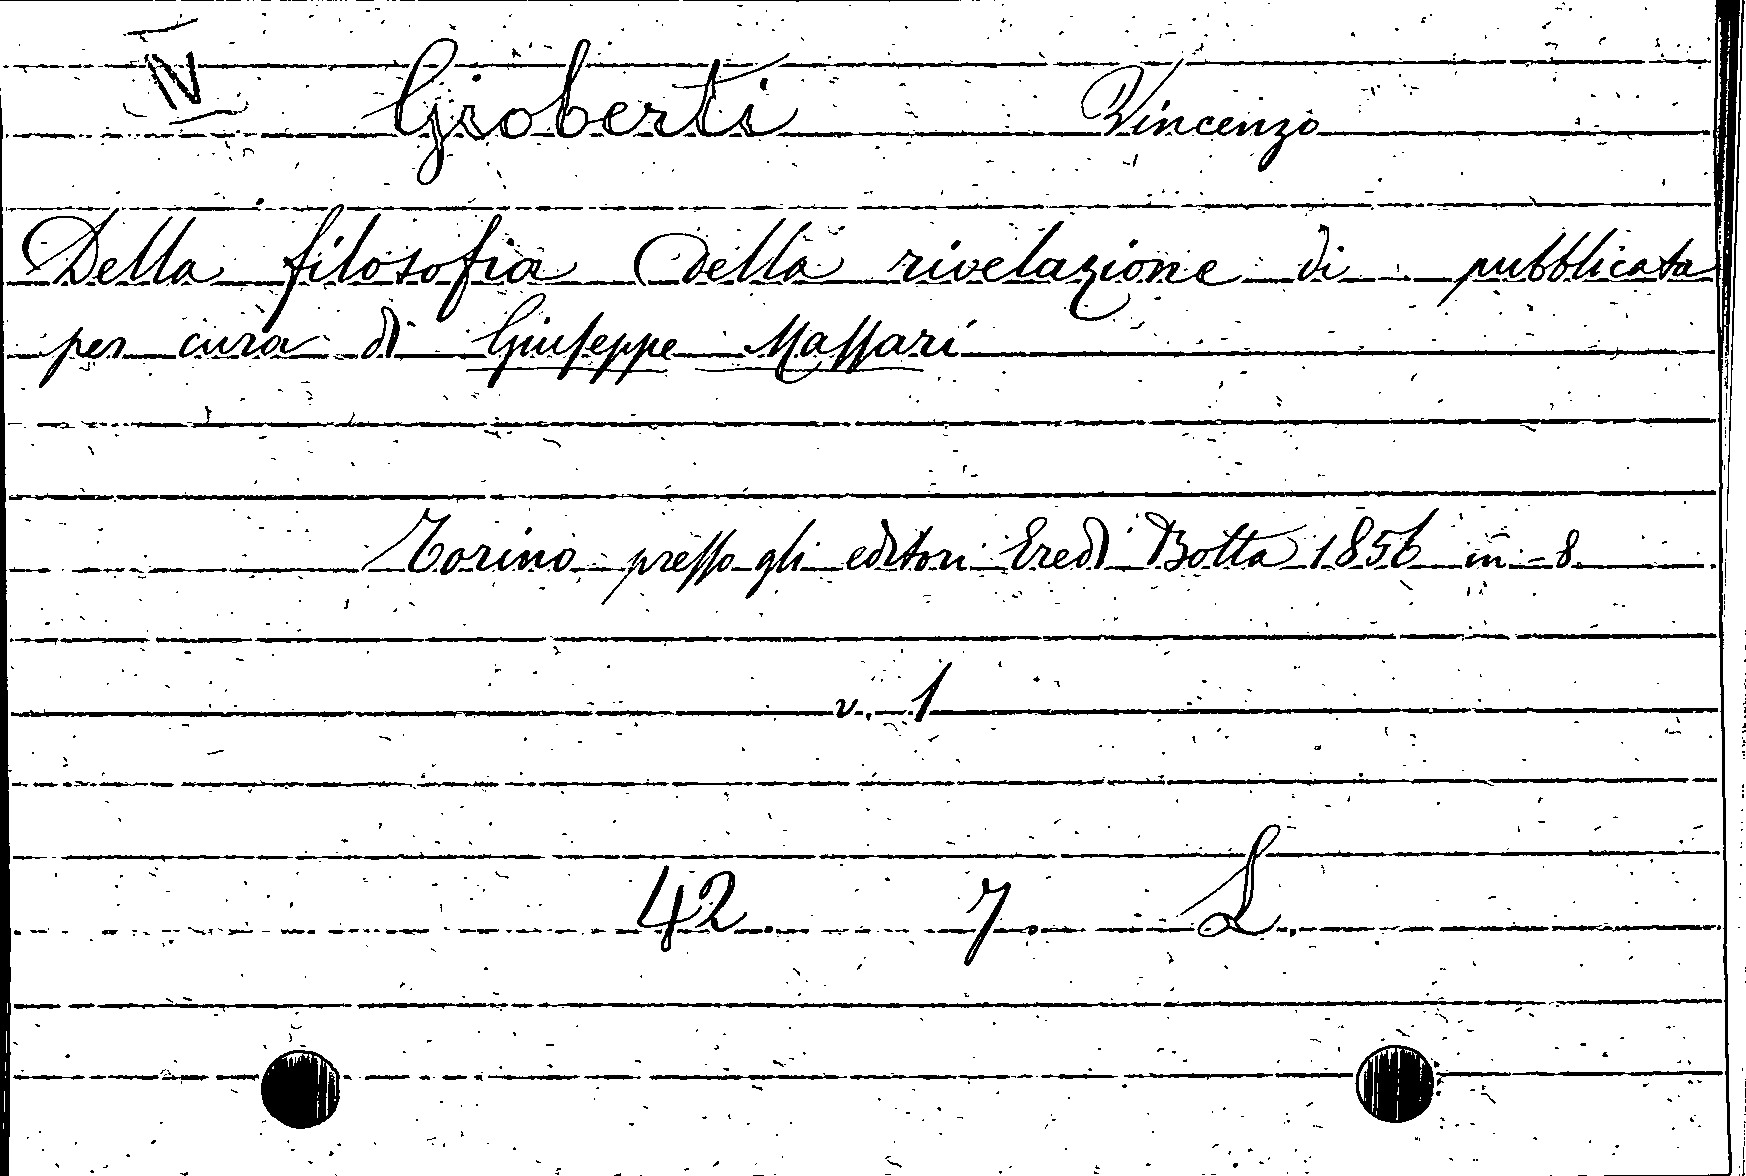 IV
Gioberti Vincenzo
Della filosofia della rivelazione di pubblicata
per cura di Giuseppe Massari
Torino presso gli editori Eredi Botta 1856 in-8.
v. 1
42. 7. L.